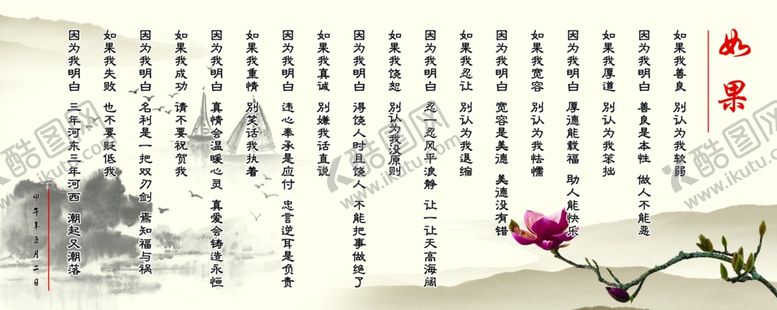 如果
如果我善良 别认为我软弱
因为我明白 善良是本性 做人不能恶
如果我厚道 别认为我笨拙
因为我明白 厚德能载福 助人能快乐
如果我宽容 别认为我怯懦
因为我明白 宽容是美德 美德没有错
如果我忍让 别认为我退缩
因为我明白 忍一忍风平浪静 让一让天高海阔
如果我饶恕 别认为我没原则
因为我明白 得饶人时且饶人 不能把事做绝了
如果我真诚 别嫌我话直说
因为我明白 违心奉承是应付 忠言逆耳是负责
如果我重情 别笑话我执着
因为我明白 真情会温暖心灵 真爱会铸造永恒
如果我成功 请不要祝贺我
因为我明白 名利是一把双刃剑 焉知福与祸
如果我失败 也不要贬低我
因为我明白 三年河东三年河西 潮起又潮落
甲午年五月二日
酷图网
www.ikutu.com